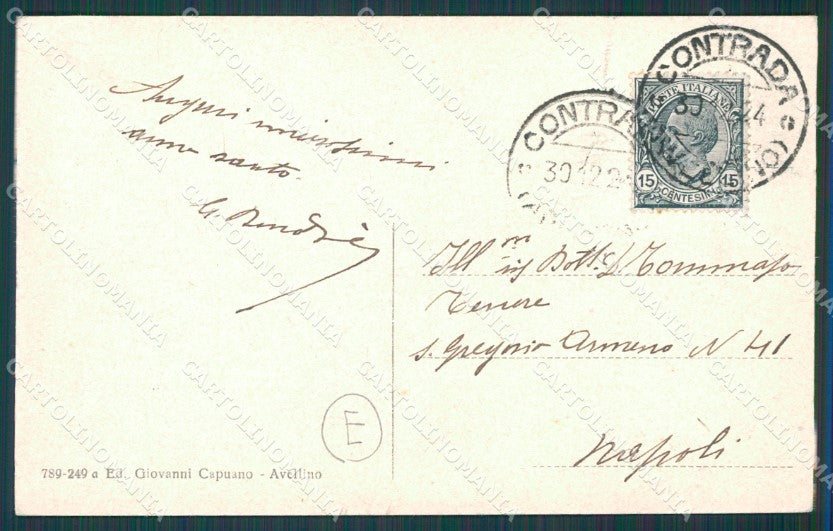 Auguri vivissimi
anno santo
CONTRADA
30.12.24
CONTRADA
30 24
POSTE ITALIANE
15 15
CENTESIMI
Ill.mo Sig. Dott. Tommaso
Tenore
S. Gregorio Armeno N 41
Napoli
E
789-249 a Ed. Giovanni Capuano - Avellino
CARTOLINOMANIA